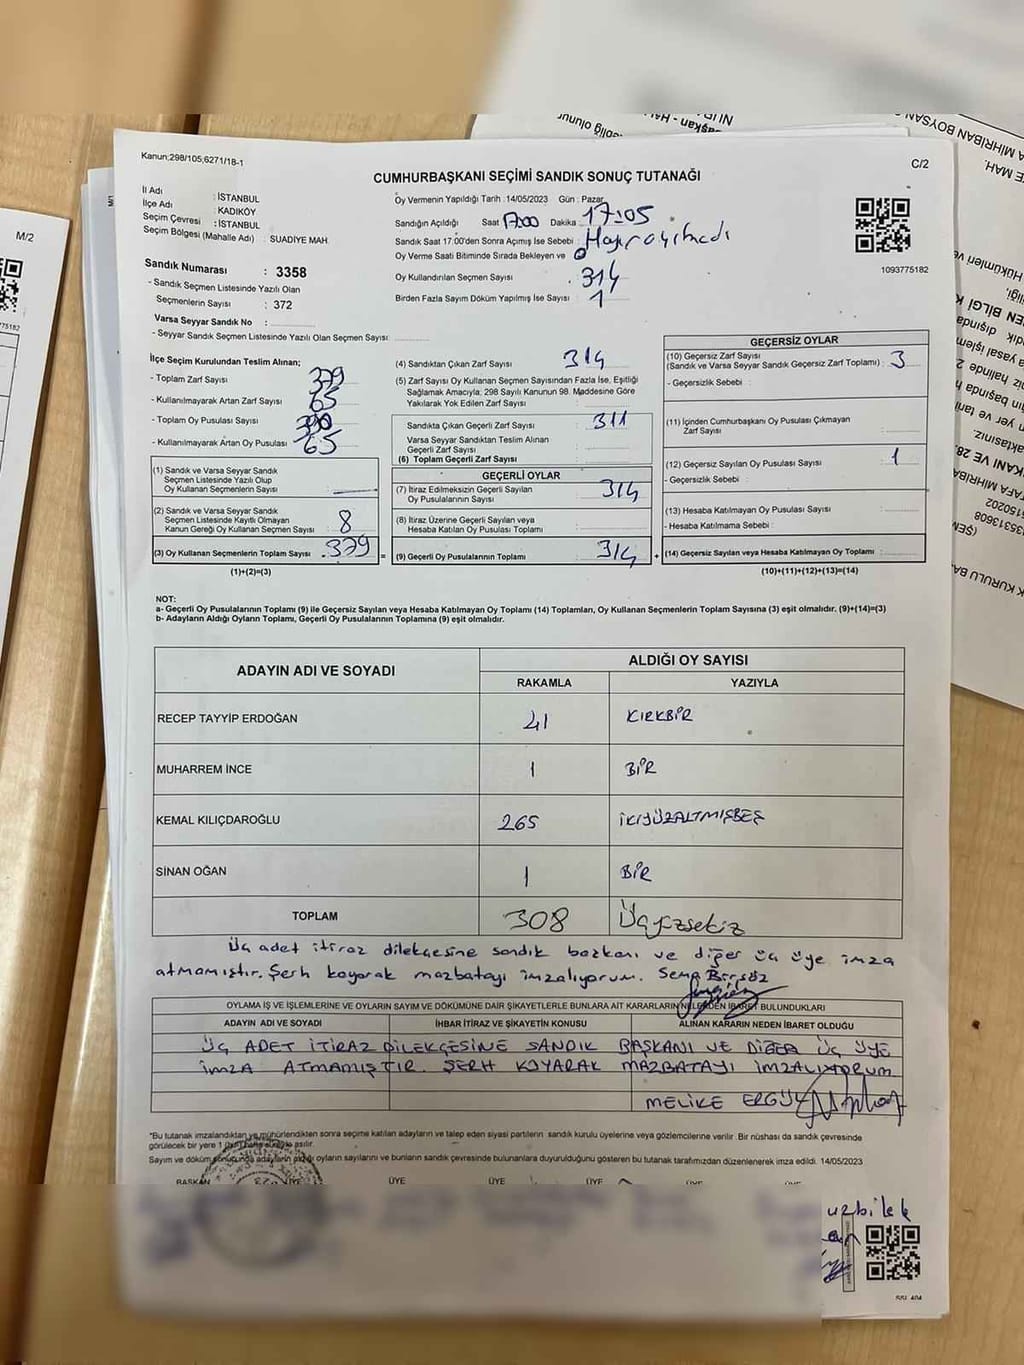 Kanun;298/105;6271/18-1
C/2
CUMHURBAŞKANI SEÇİMİ SANDIK SONUÇ TUTANAĞI
İl Adı : İSTANBUL
İlçe Adı : KADIKÖY
Seçim Çevresi : İSTANBUL
Seçim Bölgesi (Mahalle Adı) : SUADİYE MAH.
Oy Vermenin Yapıldığı Tarih :14/05/2023 Gün : Pazar
Sandığın Açıldığı Saat 17:00 Dakika : 17:05
Sandık Saat 17:00'den Sonra Açımış İse Sebebi :
Oy Verme Saati Bitiminde Sırada Bekleyen ve
Oy Kullandırılan Seçmen Sayısı : 314
Birden Fazla Sayım Döküm Yapılmış İse Sayısı : 1
1093775182
Sandık Numarası : 3358
- Sandık Seçmen Listesinde Yazılı Olan
Seçmenlerin Sayısı : 372
Varsa Seyyar Sandık No :
- Seyyar Sandık Seçmen Listesinde Yazılı Olan Seçmen Sayısı:
İlçe Seçim Kurulundan Teslim Alınan;
- Toplam Zarf Sayısı : 379
- Kullanılmayarak Artan Zarf Sayısı : 65
- Toplam Oy Pusulası Sayısı : 390
- Kullanılmayarak Artan Oy Pusulası : 65
(1) Sandık ve Varsa Seyyar Sandık
Seçmen Listesinde Yazılı Olup
Oy Kullanan Seçmenlerin Sayısı :
(2) Sandık ve Varsa Seyyar Sandık
Seçmen Listesinde Kayıtlı Olmayan
Kanun Gereği Oy Kullanan Seçmen Sayısı : 8
(3) Oy Kullanan Seçmenlerin Toplam Sayısı : 379 =
(1)+(2)=(3)
(4) Sandıktan Çıkan Zarf Sayısı : 314
(5) Zarf Sayısı Oy Kullanan Seçmen Sayısından Fazla İse, Eşitliği
Sağlamak Amacıyla; 298 Sayılı Kanunun 98. Maddesine Göre
Yakılarak Yok Edilen Zarf Sayısı :
Sandıkta Çıkan Geçerli Zarf Sayısı : 311
Varsa Seyyar Sandıktan Teslim Alınan
Geçerli Zarf Sayısı :
(6) Toplam Geçerli Zarf Sayısı :
GEÇERLİ OYLAR
(7) İtiraz Edilmeksizin Geçerli Sayılan
Oy Pusulalarının Sayısı : 314
(8) İtiraz Üzerine Geçerli Sayılan veya
Hesaba Katılan Oy Pusulası Toplamı :
(9) Geçerli Oy Pusulalarının Toplamı : 314 +
GEÇERSİZ OYLAR
(10) Geçersiz Zarf Sayısı
(Sandık ve Varsa Seyyar Sandık Geçersiz Zarf Toplamı) : 3
- Geçersizlik Sebebi :
(11) İçinden Cumhurbaşkanı Oy Pusulası Çıkmayan
Zarf Sayısı :
(12) Geçersiz Sayılan Oy Pusulası Sayısı : 1
- Geçersizlik Sebebi :
(13) Hesaba Katılmayan Oy Pusulası Sayısı :
- Hesaba Katılmama Sebebi :
(14) Geçersiz Sayılan veya Hesaba Katılmayan Oy Toplamı :
(10)+(11)+(12)+(13)=(14)
NOT:
a- Geçerli Oy Pusulalarının Toplamı (9) ile Geçersiz Sayılan veya Hesaba Katılmayan Oy Toplamı (14) Toplamları, Oy Kullanan Seçmenlerin Toplam Sayısına (3) eşit olmalıdır. (9)+(14)=(3)
b- Adayların Aldığı Oyların Toplamı, Geçerli Oy Pusulalarının Toplamına (9) eşit olmalıdır.
ADAYIN ADI VE SOYADI ALDIĞI OY SAYISI
RAKAMLA YAZIYLA
RECEP TAYYİP ERDOĞAN 41 KIRKBİR
MUHARREM İNCE 1 BİR
KEMAL KILIÇDAROĞLU 265 İKİYÜZALTMIŞBEŞ
SİNAN OĞAN 1 BİR
TOPLAM 308 Üçyüzsekiz
Üç adet itiraz dilekçesine sandık başkanı ve diğer üç üye imza
atmamıştır. Şerh koyarak mazbatayı imzalıyorum. Sema Birsöz
OYLAMA İŞ VE İŞLEMLERİNE VE OYLARIN SAYIM VE DÖKÜMÜNE DAİR ŞİKAYETLERLE BUNLARA AİT KARARLARIN NELERDEN İBARET BULUNDUKLARI
ADAYIN ADI VE SOYADI İHBAR İTİRAZ VE ŞİKAYETİN KONUSU ALINAN KARARIN NEDEN İBARET OLDUĞU
ÜÇ ADET İTİRAZ DİLEKÇESİNE SANDIK BAŞKANI VE DİĞER ÜÇ ÜYE
İMZA ATMAMIŞTIR. ŞERH KOYARAK MAZBATAYI İMZALIYORUM
MELİKE ERGÜL
*Bu tutanak imzalandıktan ve mühürlendikten sonra seçime katılan adayların ve talep eden siyasi partilerin sandık kurulu üyelerine veya gözlemcilerine verilir. Bir nüshası da sandık çevresinde
görülecek bir yere 1 asılır.
Sayım ve döküm sonucunda adayların aldığı oyların sayılarını ve bunların sandık çevresinde bulunanlara duyurulduğunu gösteren bu tutanak tarafımızdan düzenlenerek imza edildi. 14/05/2023
BAŞKAN ÜYE ÜYE ÜYE ÜYE ÜYE ÜYE
M/2